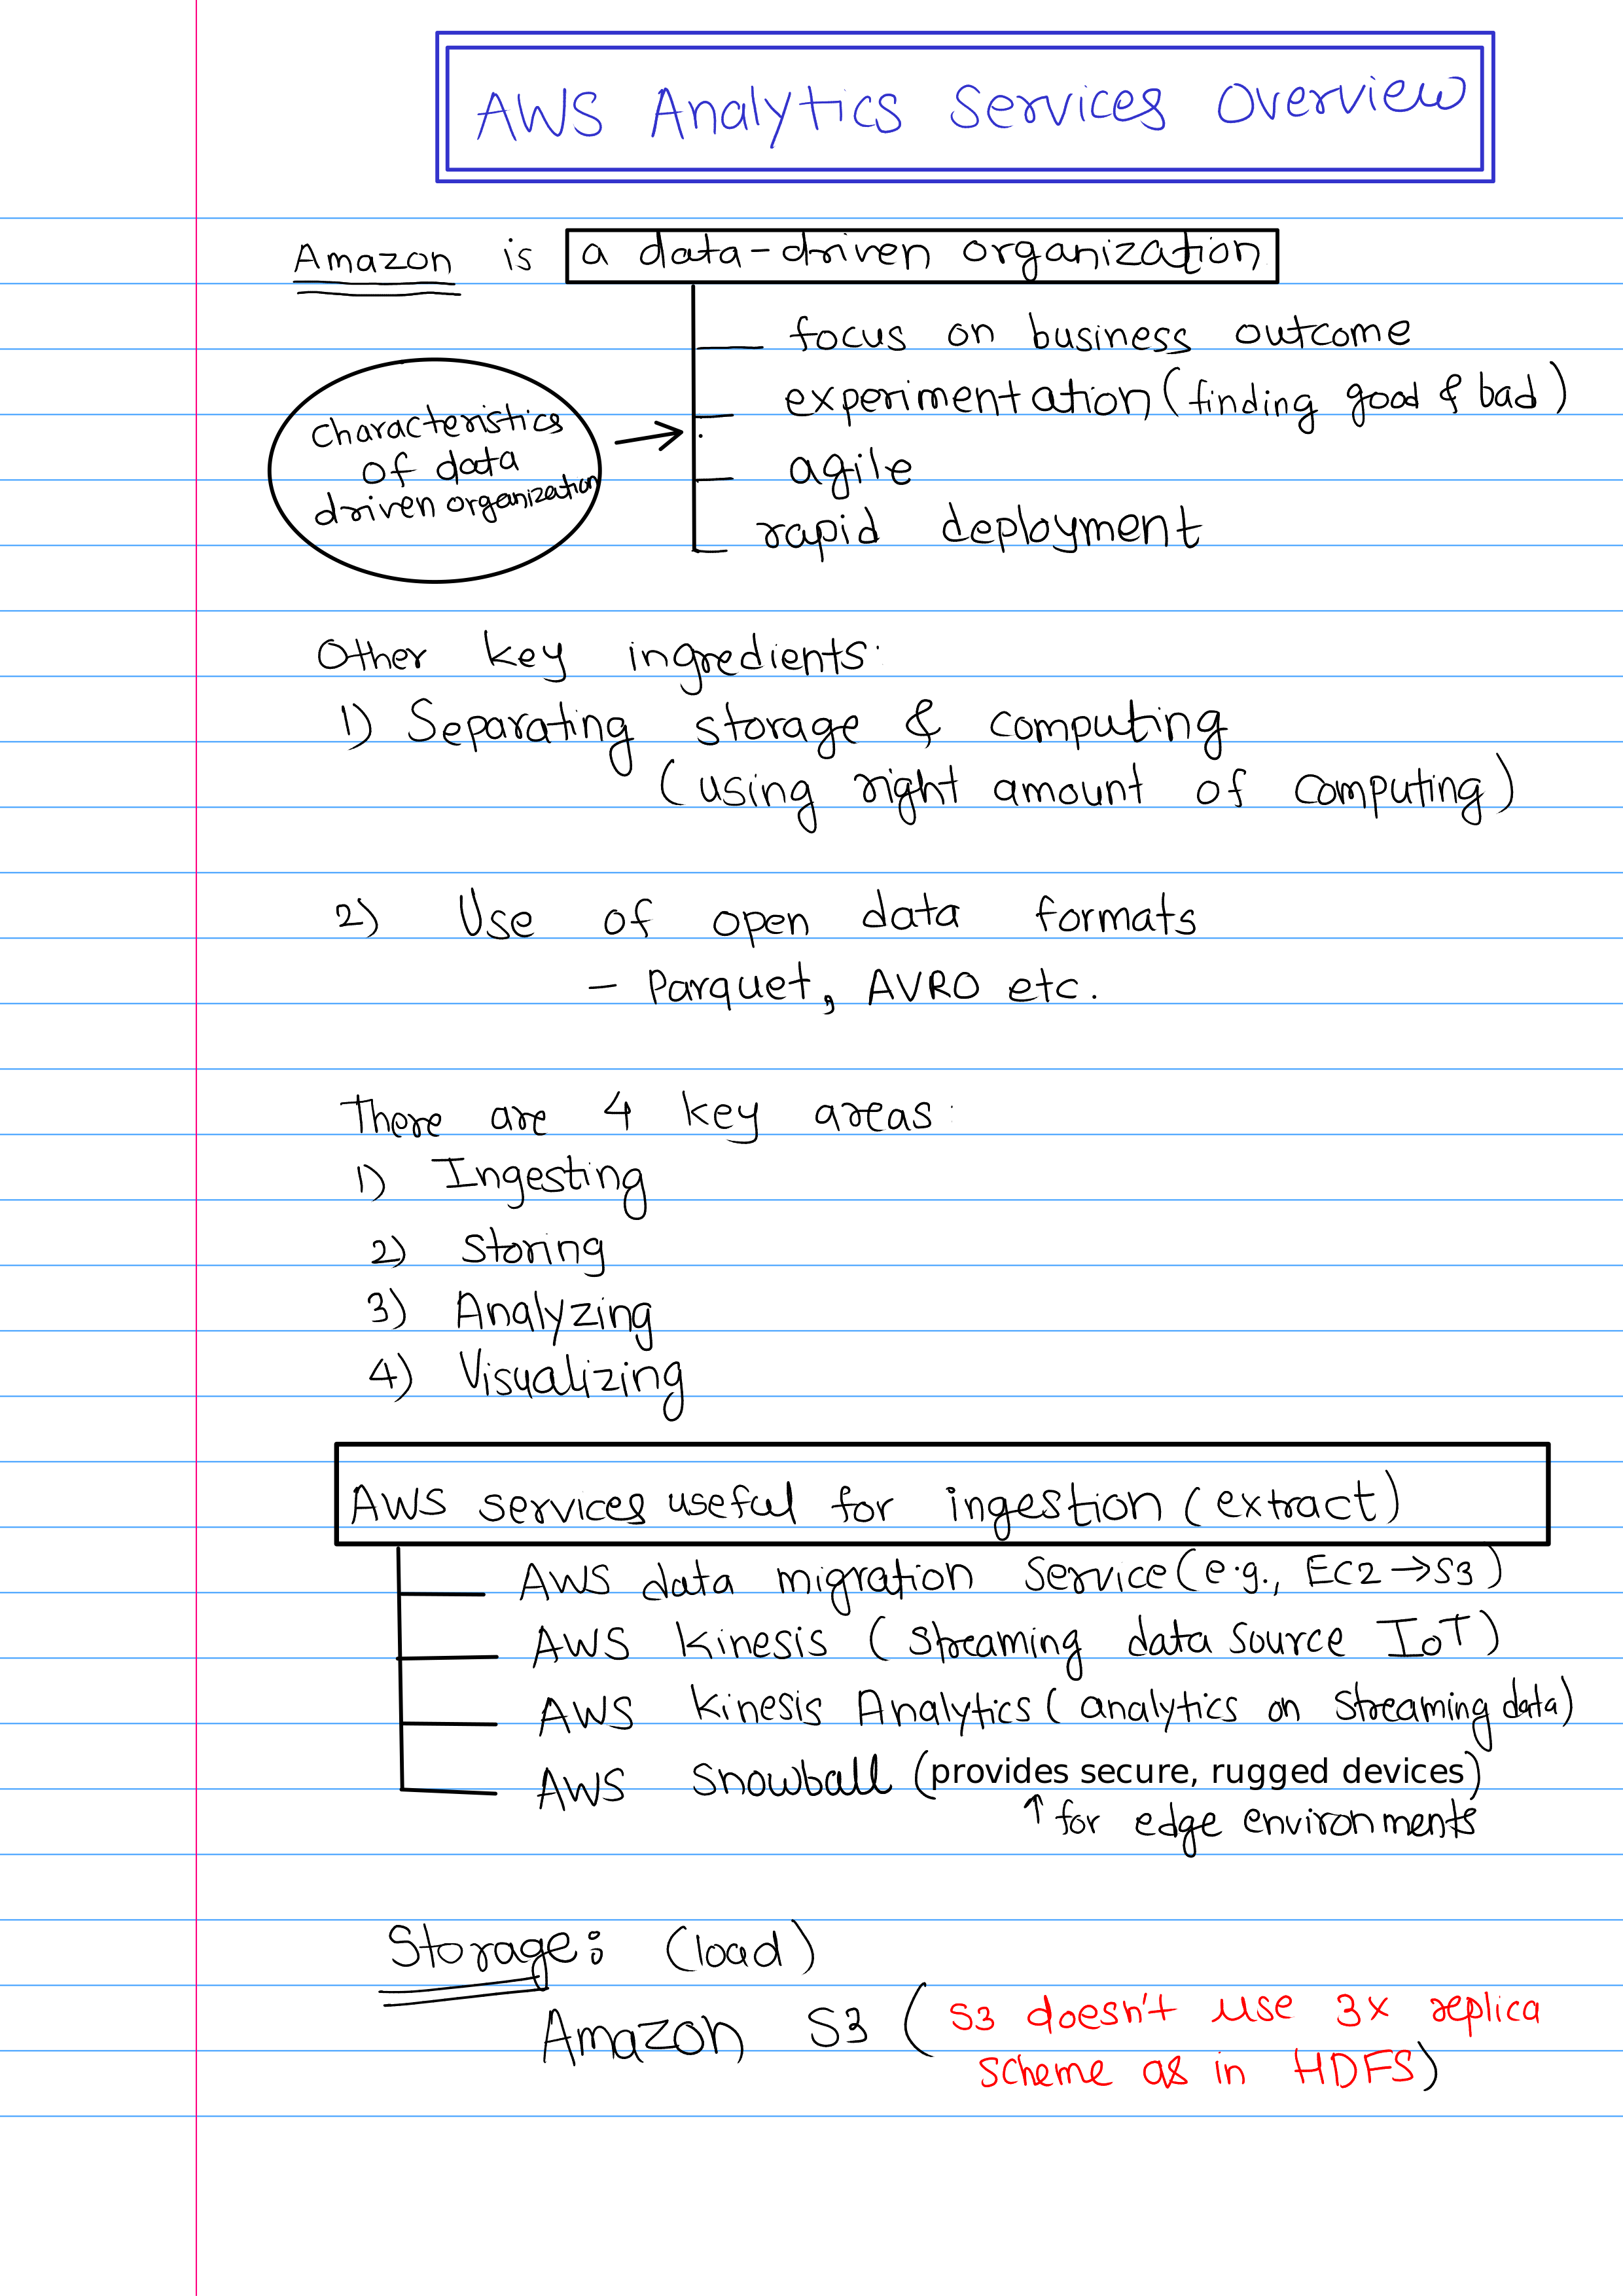 AWS Analytics Services Overview
Amazon is a data-driven organization
focus on business outcome
experimentation (finding good & bad)
characteristics
of data
driven organization
agile
rapid deployment
Other key ingredients:
1) Separating storage & computing
(using right amount of computing)
2) Use of open data formats
- Parquet, AVRO etc.
There are 4 key areas:
1) Ingesting
2) Storing
3) Analyzing
4) Visualizing
AWS services useful for ingestion (extract)
AWS data migration service (e.g., EC2 → S3)
AWS Kinesis (streaming data source IoT)
AWS Kinesis Analytics (analytics on streaming data)
AWS Snowball (provides secure, rugged devices)
↑ for edge environments
Storage: (load)
Amazon S3 (S3 doesn't use 3x replica
scheme as in HDFS)